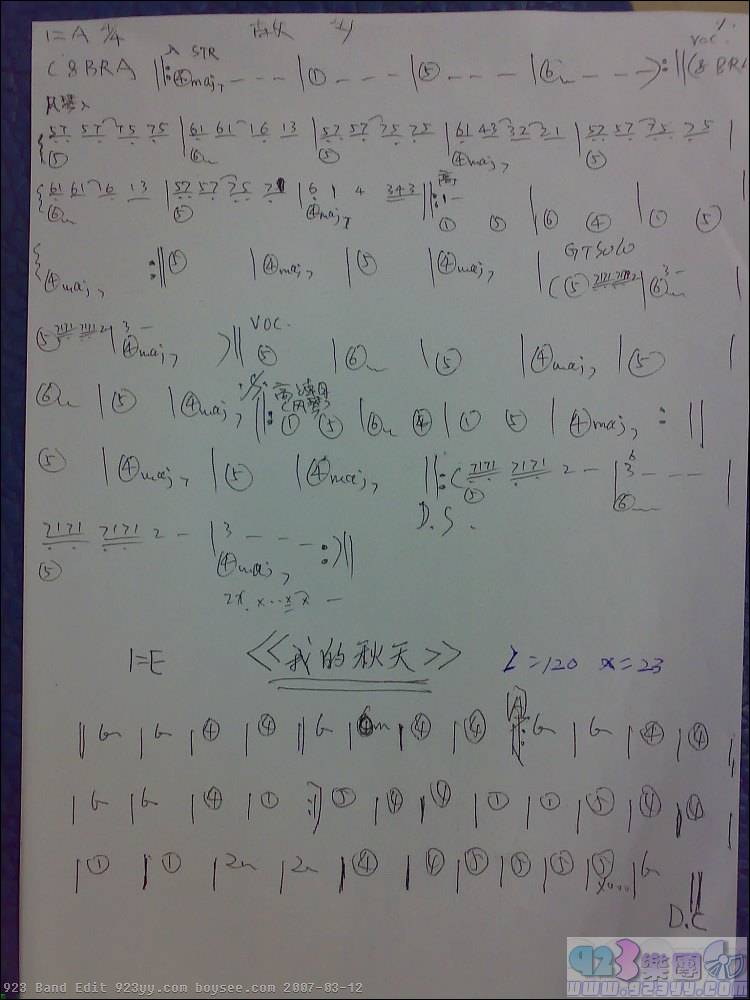 1=A 4/4
入 STR VOC.
(8BRA) ‖: ④maj7 - - - | ① - - - | ⑤ - - - | ⑥m - - - ):‖ (8 BRA
风琴入
57 57 75 75 | 61 61 16 13 | 57 57 75 75 | 61 43 32 21 | 57 57 75 75 |
⑤ ⑥m ⑤ ④maj7 ⑤
61 61 16 13 | 57 57 75 | 6 1 4 343 ‖: 1 -
⑥m ⑤ ④maj7 ① ⑤ | ⑥ ④ | ① ⑤
④maj7 :‖ ⑤ | ④maj7 | ⑤ | ④maj7 | GTSOLO
(⑤ 7171 7171 2 | ⑥m 3 -
⑤ 7171 7171 2 | ④maj7 3 - )‖ VOC. ⑤ | ⑥m | ⑤ | ④maj7 | ⑤
⑥m | ⑤ | ④maj7 ‖: ① ⑤ | ⑥m ④ | ① ⑤ | ④maj7 :‖
⑤ | ④maj7 | ⑤ | ④maj7 ‖: (7171 7171 2 - | 3 - - - |
⑤ ⑥m
D.S.
7171 7171 2 - | 3 - - - :)‖
⑤ ④maj7
1=E <<我的秋天>> Z=120 x=23
‖ 6m | 6m | ④ | ④ ‖ 6m | 6m | ④ | ④ A ‖: 6m | 6m | ④ | ④ |
| 6m | 6m | ④ | ① :‖ ⑤ | ④ | ④ | ① | ① | ⑤ | ④ | ④ |
| ① | ① | 2m | 2m | ④ | ④ | ⑤ | ⑤ | ⑤ | ⑤ | 6m ‖
D.C
923樂團
923 Band Edit 923yy.com boysee.com 2007-03-12
www.923yy.com